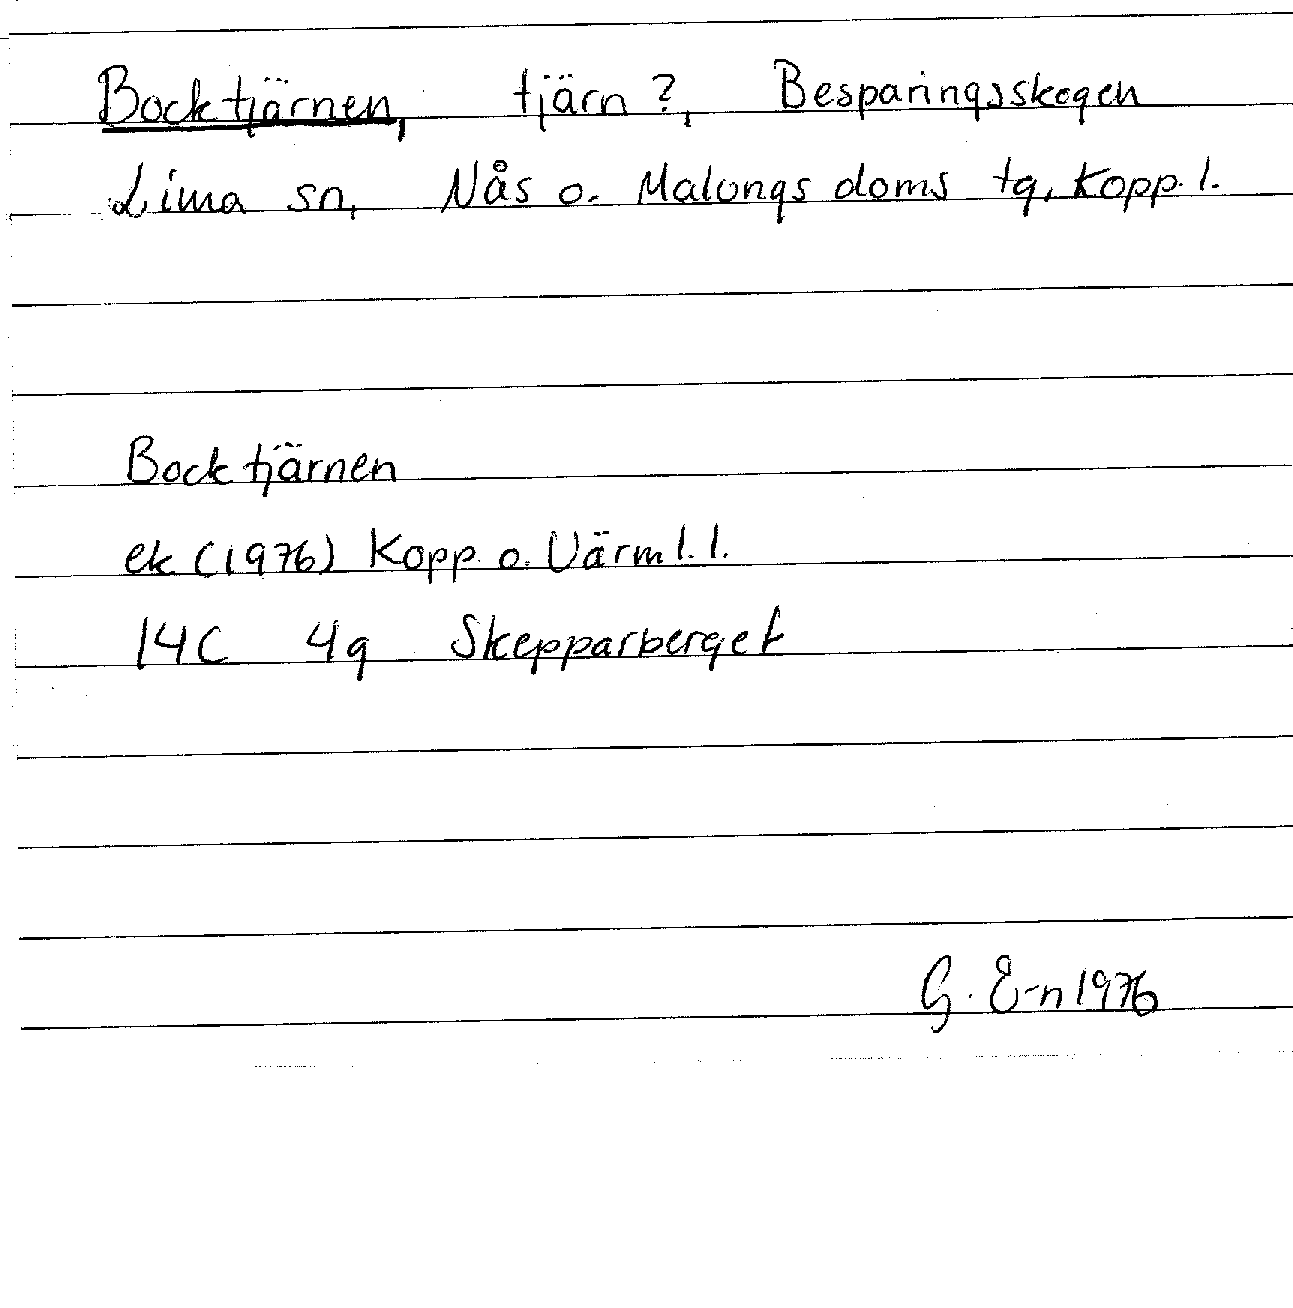 Bocktjärnen, tjärn?, Besparingsskogen
Lima sn, Nås o. Malungs doms tg, Kopp. l.
Bocktjärnen
ek (1976) Kopp. o. Värml. l.
14C 4g Skepparberget
G. E-n 1976